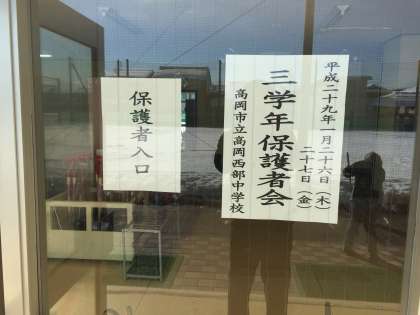 平成二十九年一月二十六日（木）
二十七日（金）
三学年保護者会
高岡市立高岡西部中学校
保護者入口